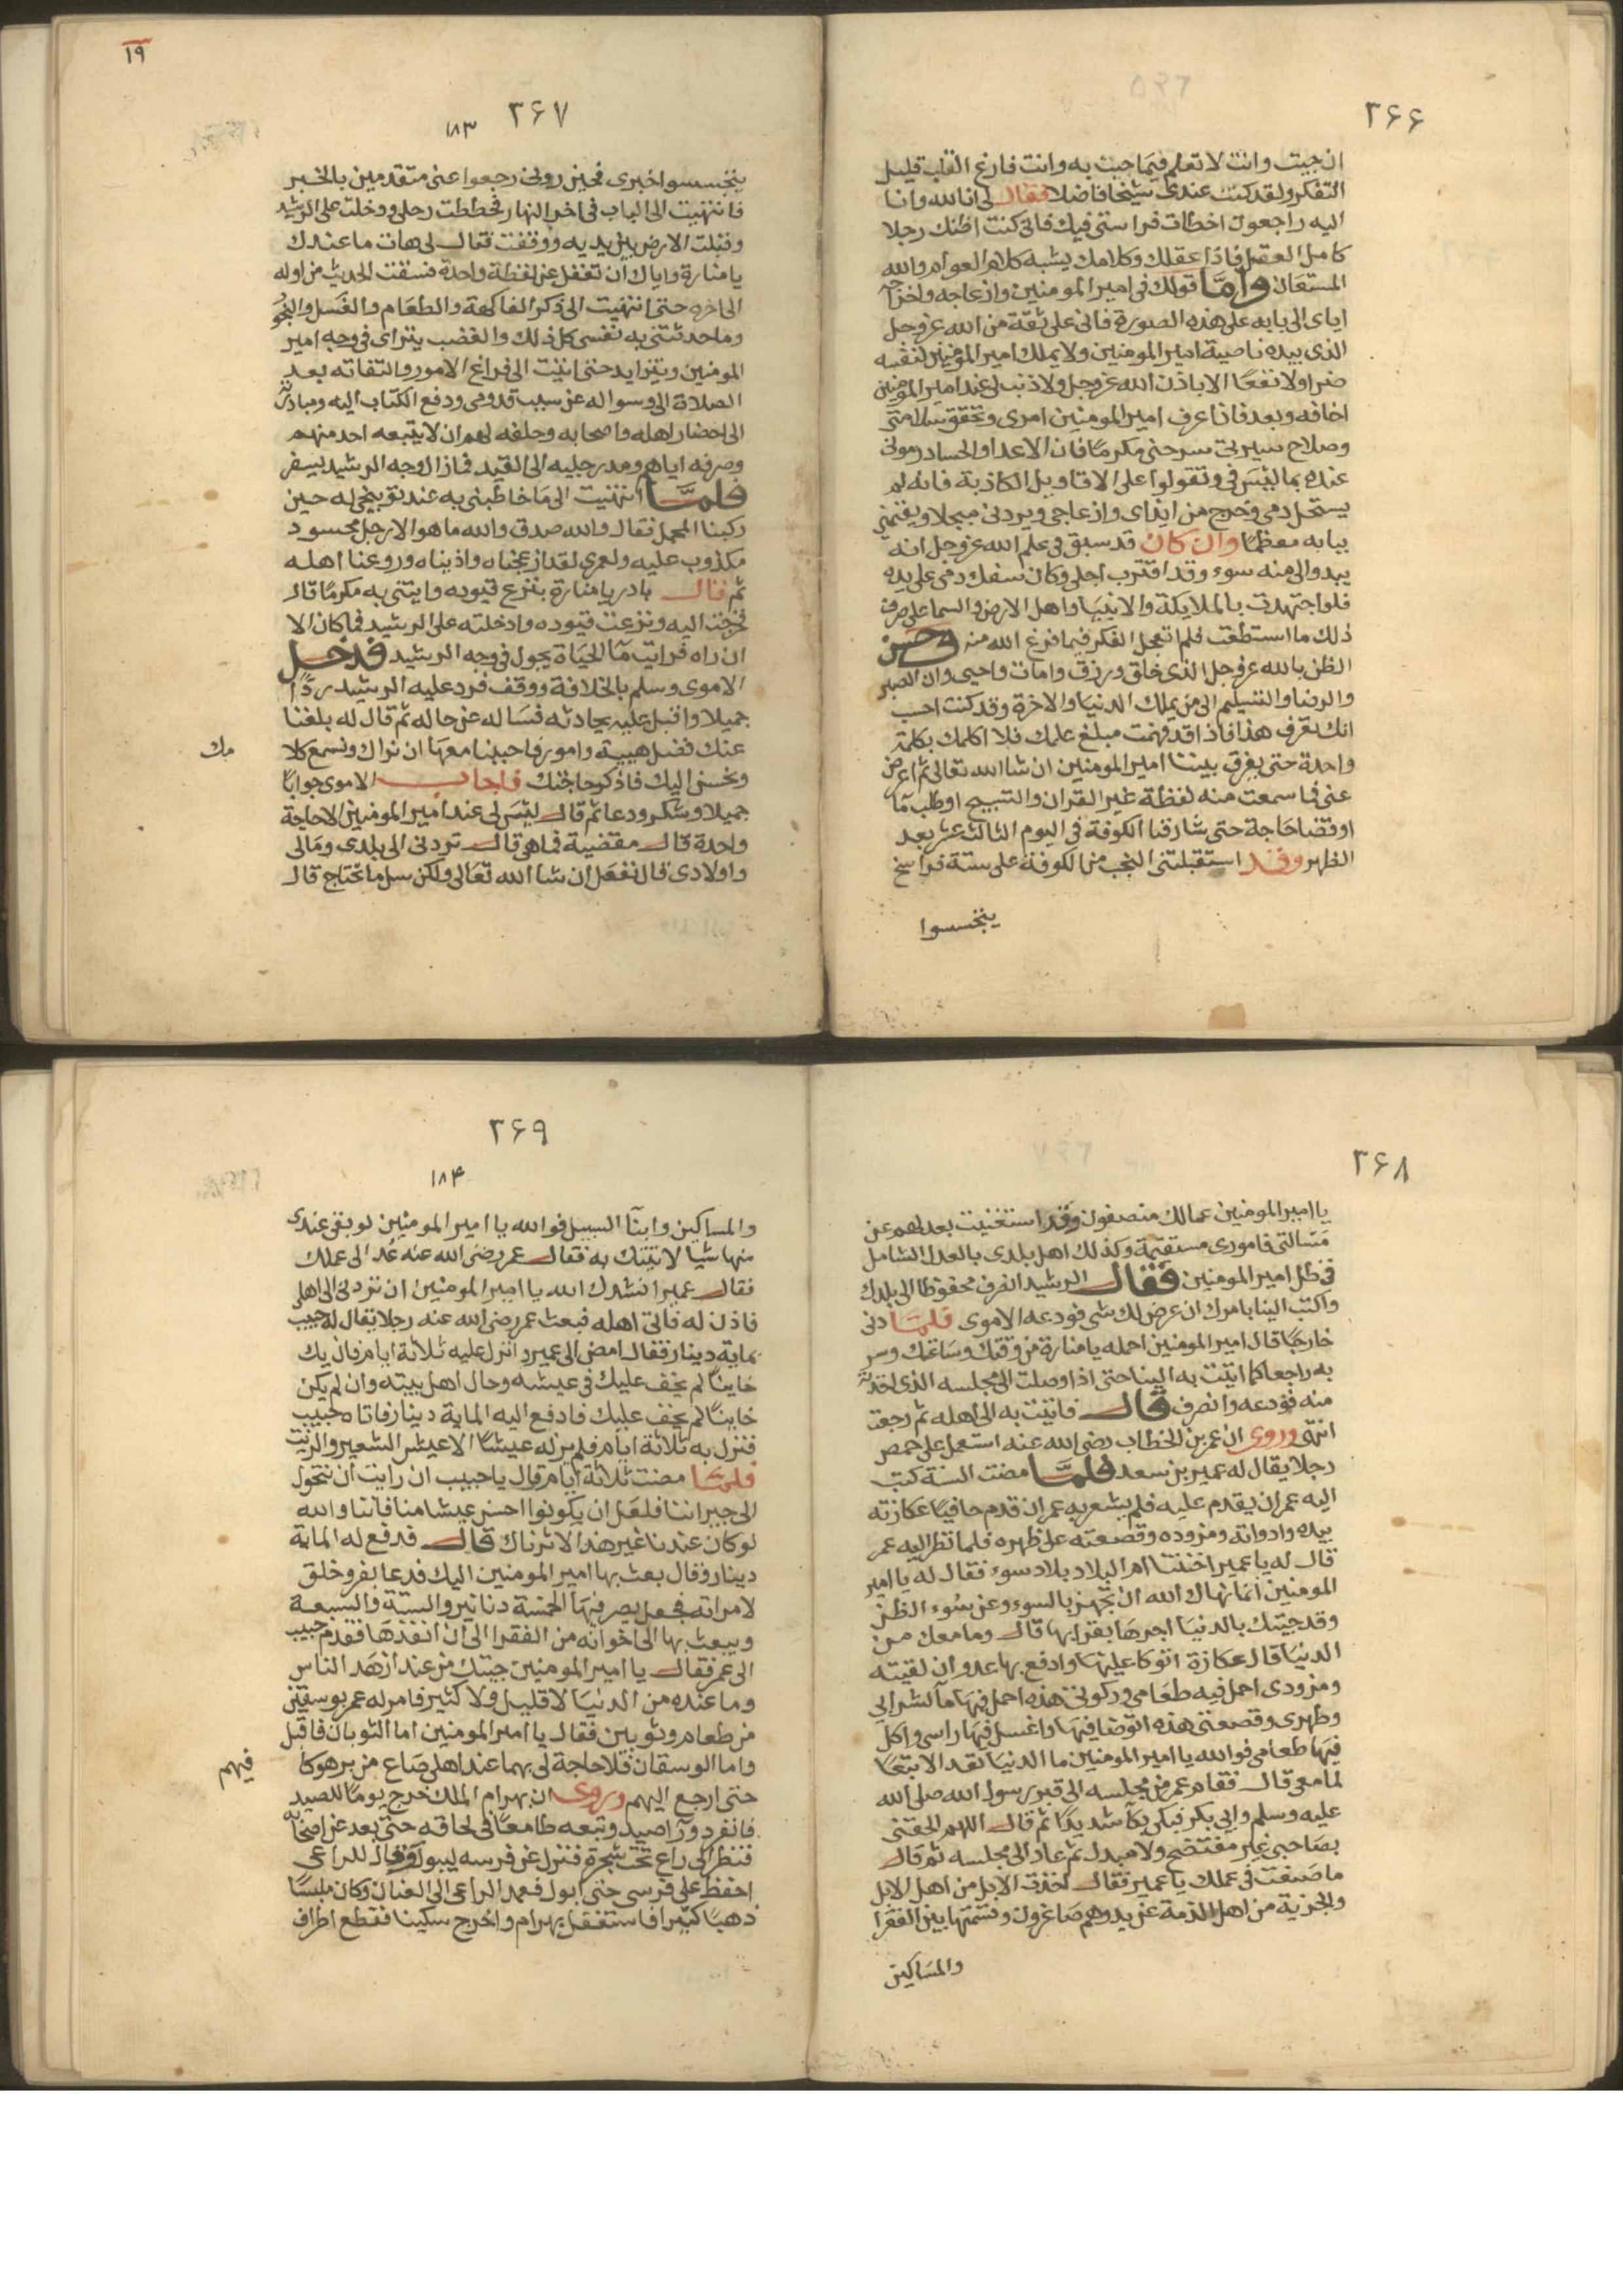 ٢۶۶
ان جيت وانت لا تعلم فيما جيت به وانت فارغ القلب قليل
التفكر ولقد كنت عندى شيخا فاضلا فقال لى انا لله وانا
اليه راجعون اخطات فراستى فيك فانى كنت اظنك رجلا
كامل العقل فاذا عقلك وكلامك يشبه كلام العوام والله
المستعان واما قولك فى امير المومنين وازعاجه واخراجه
اياى الى بابه على هذه الصورة فانى على ثقة من الله عز وجل
الذى بيده ناصية امير المومنين ولا يملك امير المومنين لنفسه
ضرا ولا نفعا الا باذن الله عز وجل ولا ذنب لى عند امير المومنين
اخافه وبعد فاذا عرف امير المومنين امرى وتحقق سلامتى
وصلاح سيرتى سرحنى مكرما فان الاعدا والحساد رمونى
عنده بما ليس فى وتقولوا على الاقاويل الكاذبة فانه لم
يستحل دمى وخرج من ايذاى وازعاجى ويردنى مبجلا ويقيمنى
ببابه معظما وان كان قد سبق فى علم الله عز وجل انه
يبدو الى منه سوء وقد اقترب اجلى وكان سفك دمى على يده
فلو اجتهدت بالملايكة والانبيا واهل الارض والسما على صرف
ذلك ما استطعت فلم تعجل الفكر فيما فرغ الله منه وحسن
الظن بالله عز وجل الذى خلق ورزق وامات واحيى وان الصبر
والرضا والتسليم الى من يملك الدنيا والاخرة وقد كنت احسب
انك تعرف هذا فاذا قد فهمت مبلغ علمك فلا اكلمك بكلمة
واحدة حتى يفرق بيننا امير المومنين ان شا الله تعالى ثم اعرض
عنى فما سمعت منه لفظة غير القران والتسبيح او طلب ما
او قضا حاجة حتى شارفنا الكوفة فى اليوم الثالث عشر بعد
الظهر وقد استقبلتنى النجب من الكوفة على ستة فراسخ
يتجسسوا
١٩
٢۶٧
١٨٣
يتجسسوا خبرى فحين رونى رجعوا عنى متقدمين بالخبر
فانتهيت الى الباب فى اخر النهار فحططت رحلى ودخلت على الرشيد
وقبلت الارض بين يديه ووقفت فقال لى هات ما عندك
يا منارة واياك ان تغفل عن لفظة واحدة فسقت الحديث من اوله
الى اخره حتى انتهيت الى ذكر الفاكهة والطعام والغسل والبخور
وما حدثتنى به نفسى كل ذلك والغضب يتراى فى وجه امير
المومنين ويتزايد حتى انتهيت الى فراغ الاموى والتفاته بعد
الصلاة الى وسواله عن سبب قدومى ودفع الكتاب اليه ومبادرته
الى احضار اهله واصحابه وحلفه لهم ان لا يتبعه احد منهم
وصرفه اياهم ومد رجليه الى القيد فما زال وجه الرشيد يسفر
فلما انتهيت الى ما خاطبنى به عند توبيخى له حين
ركبنا المحمل فقال والله صدق والله ما هو الا رجل محسود
مكذوب عليه ولعمرى لقد ازعجناه واذيناه وروعنا اهله
ثم قال بادر يا منارة بنزع قيوده وايتنى به مكرما قال
فخرجت اليه ونزعت قيوده وادخلته على الرشيد فما كان الا
ان راه فرايت ما الحياة يجول فى وجه الرشيد فدخل
الاموى وسلم بالخلافة ووقف فرد عليه الرشيد ردا
جميلا واقبل عليه يحادثه فساله عن حاله ثم قال له بلغنا
عنك فضل هيبة وامور فاحببنا معها ان نراك ونسمع كلا
مك
ونحسن اليك فاذكر حاجتك فاجاب الاموى جوابا
جميلا وشكر ودعا ثم قال ليس لى عند امير المومنين الا حاجة
واحدة قال مقضية فما هى قال تردنى الى بلدى ومالى
واولادى قال نفعل ان شا الله تعالى ولكن سل ما تحتاج قال
٢۶٨
يا امير المومنين عمالك منصفون وقد استغنيت بعدلهم عن
مسالتى فامورى مستقيمة وكذلك اهل بلدى بالعدل الشامل
فى ظل امير المومنين فقال الرشيد انصرف محفوظا الى بلدك
واكتب الينا بامرك ان عرض لك شى فودعه الاموى فلما دنى
خارجا قال امير المومنين احمله يا منارة من وقتك وساعتك وسر
به راجعا كما اتيت به الينا حتى اذا وصلت الى مجلسه الذى اخذته
منه فودعه وانصرف قال فاتيت به الى اهله ثم رجعت
انتهى وروى ان عمر بن الخطاب رضى الله عنه استعمل على حمص
رجلا يقال له عمير بن سعد فلما مضت السنة كتب
اليه عمر ان يقدم عليه فلم يشعر به عمر ان قدم حافيا عكازته
بيده وادواته ومزوده وقصعته على ظهره فلما نظر اليه عمر
قال له يا عمير اخنتنا ام البلاد بلاد سوء فقال له يا امير
المومنين اما نهاك الله ان تجهز بالسوء وعن سوء الظن
وقد جيتك بالدنيا اجرها بقرابها قال وما معك من
الدنيا قال عكازة اتوكا عليها وادفع بها عدو ان لقيته
ومزودى احمل فيه طعامى وركوتى هذه احمل فيها ما لشرابى
وطهرى وقصعتى هذه اتوضا فيها واغسل فيها راسى واكل
فيها طعامى فوالله يا امير المومنين ما الدنيا بعد الا تبعا
لما معى قال فقام عمر من مجلسه الى قبر رسول الله صلى الله
عليه وسلم وابى بكر فبكى بكا شديدا ثم قال اللهم الحقنى
بصاحبى غير مفتضح ولا مبدل ثم عاد الى مجلسه ثم قال
ما صنعت فى عملك يا عمير فقال اخذت الابل من اهل الابل
والجزية من اهل الذمة عن يد وهم صاغرون وقسمتها بين الفقرا
والمساكين
٢۶٩
١٨۴
والمساكين وابنا السبيل فوالله يا امير المومنين لو بقى عندى
منها شيا لاتيتك به فقال عمر رضى الله عنه عد الى عملك
فقال عمير انشدك الله يا امير المومنين ان تردنى الى اهلى
فاذن له فاتى اهله فبعث عمر رضى الله عنه رجلا يقال له حبيب
بماية دينار فقال امض الى عمير وانزل عليه ثلاثة ايام فان يك
خاينا لم يخف عليك فى عيشه وحال اهل بيته وان لم يكن
خاينا لم يخف عليك فادفع اليه الماية دينار فاتاه حبيب
فنزل به ثلاثة ايام فلم ير له عيشا الا عيش الشعير والزيت
فلما مضت ثلاثة ايام قال يا حبيب ان رايت ان تتحول
الى جيراننا فلعل ان يكونوا احسن عيشا منا فاننا والله
لو كان عندنا غير هذا لاثرناك قال فدفع له الماية
دينار وقال بعث بها امير المومنين اليك فدعا بفرو خلق
لامراته فجعل يصر فيها الخمسة دنانير والستة والسبعة
ويبعث بها الى اخوانه من الفقرا الى ان انفذها فقدم حبيب
الى عمر فقال يا امير المومنين جيتك من عند ازهد الناس
وما عنده من الدنيا لا قليل ولا كثير فامر له عمر بوسقين
من طعام وثوبين فقال يا امير المومنين اما الثوبان فاقبل
واما الوسقان فلا حاجة لى بهما عند اهلى صاع من بر هو كا
فيهم
حتى ارجع اليهم وروى ان بهرام الملك خرج يوما للصيد
فانفرد ورا صيد وتبعه طامعا فى لحاقه حتى بعد عن اصحابه
فنظر الى راع تحت شجرة فنزل عن فرسه ليبول وقال للراعى
احفظ على فرسى حتى ابول فعمد الراعى الى العنان وكان ملبسا
ذهبا كثيرا فاستغفل بهرام واخرج سكينا فقطع اطراف